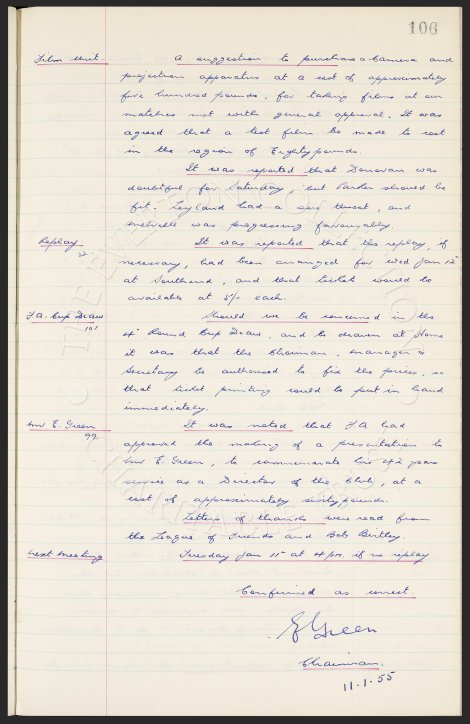 106
Film Unit. A suggestion to purchase a Camera and
projection apparatus at a cost of approximately
five hundred pounds, for taking films at our
matches met with general approval. It was
agreed that a test film be made to cost
in the region of Eighty pounds.
It was reported that Donovan was
doubtful for Saturday, but Parker should be
fit. Leyland had a sore throat, and
was progressing favourably.
Replay It was reported that, the replay, if
necessary, had been arranged for Wed Jan 12
at Southend, and that tickets would be
available at 5/- each.
F.A. Cup Draw Should we be concerned in the
101
4th Round Cup Draw, and be drawn at Home
it was that the Chairman, Manager &
Secretary be authorised to fix the prices, so
that ticket printing could be put in hand
immediately.
Mr E. Green It was noted that F.A. had
99.
approved the making of a presentation to
Mr E. Green, to commemorate his 42 years
service as a Director of the Club, at a
cost of approximately sixty pounds.
Letters of thanks were read from
the League of Friends and Bob Birtley.
Next meeting Tuesday Jan 11th at 4 pm. if no replay
Confirmed as correct.
E Green
Chairman.
11.1.55